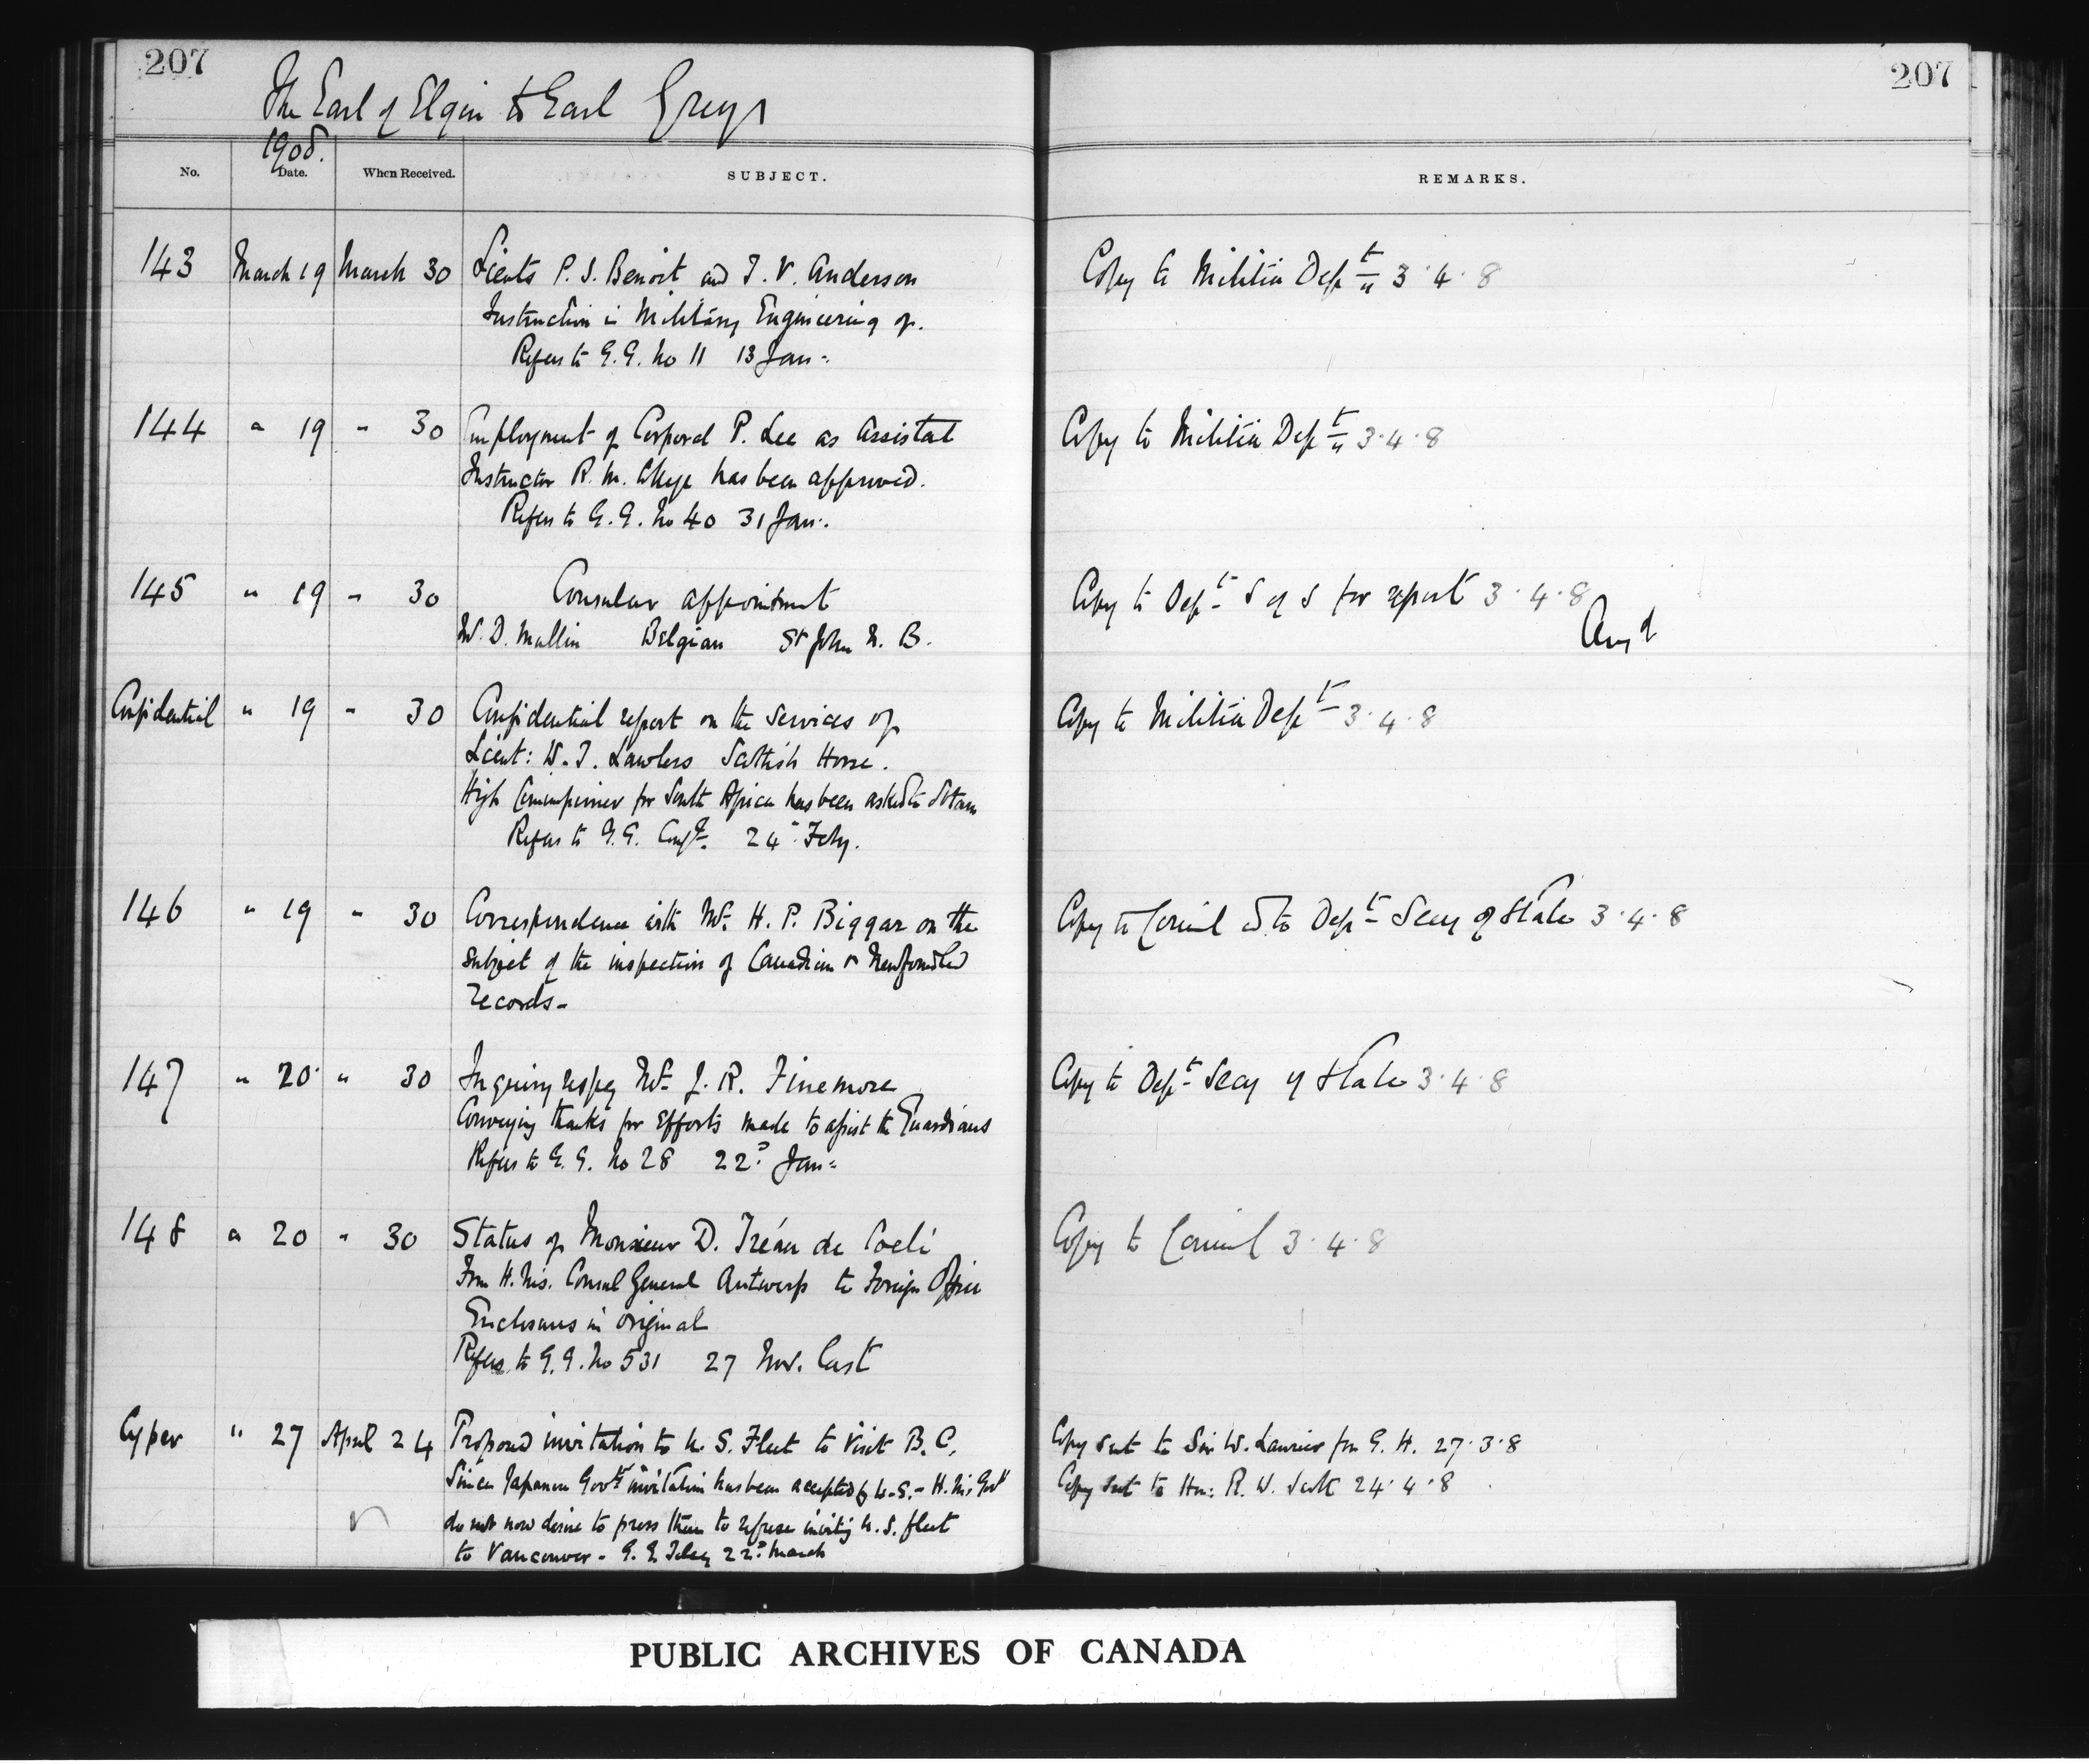 207
207
The Earl of Elgin to Earl Grey
1908.
No. Date. When Received. SUBJECT. REMARKS.
143 March 19 March 30 Lieuts P. S. Benoit and T. V. Anderson Copy to Militia Dept 3.4.8
Instruction in Military Engineering of.
Refers to G.G. No 11 13 Jan:
144 " 19 " 30 Employment of Corporal P. Lee as Assistat Copy to Militia Dept 3.4.8
Instructor R. M. College has been approved.
Refers to G.G. No 40 31 Jan:.
145 " 19 " 30 Consular appointment Copy to Dept S of S for report 3.4.8
W. D. Mullin Belgian St John N. B. Ansd
Confidential " 19 " 30 Confidential report on the services of Copy to Militia Dept 3.4.8
Lieut: W. T. Lawless Scottish Horse.
High Commissioner for South Africa has been asked to obtain
Refers to G.G. Conf. 24 Feby.
146 " 19 " 30 Correspondence with Mr. H. P. Biggar on the Copy to Council & to Dept Secy of State 3.4.8
subject of the inspection of Canadian & Newfoundland
records-
147 " 20 " 30 Inquiry respg Mr J. R. Finemore Copy to Dept Secy of State 3.4.8
Conveying thanks for efforts made to assist the Guardians
Refers to G.G. No 28 22d Jan:
148 " 20 " 30 Status of Monsieur D. Tréau de Coeli Copy to Council 3.4.8
From H.M's. Consul General Antwerp to Foreign Office
Enclosures in original
Refers to G.G. No 531 27 Nov. last
Cypher " 27 April 24 Proposed invitation to U. S. Fleet to visit B. C. Copy sent to Sir W. Laurier from G. H. 27.3.8
Since Japanese Govts invitation has been accepted by U.S. - H.M. Govt Copy sent to Hon: R. W. Scott 24.4.8
do not now desire to press them to refuse inviting U. S. fleet
to Vancouver - G. G. Teleg 22d March
PUBLIC ARCHIVES OF CANADA